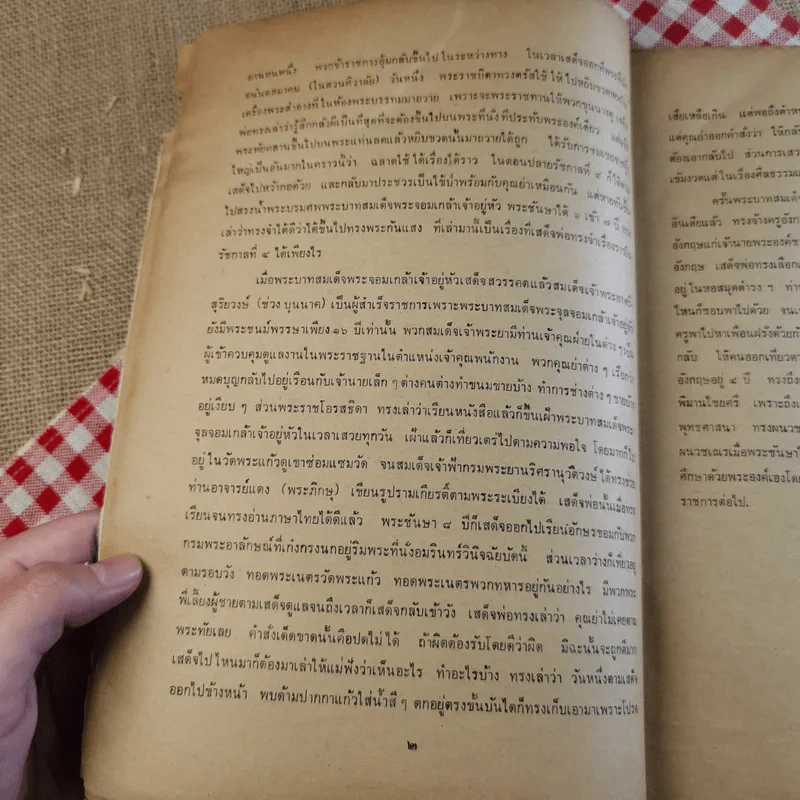 อานหนหนึ่ง พวกข้าราชการอุ้มกลับขึ้นไป ในระหว่างทาง ในเวลาเสด็จออกที่พระที่นั่ง
อนันตสมาคม (ในสวนศิวาลัย) วันหนึ่ง พระราชบิดาทรงตรัสใช้ให้ไปหยิบขวด
เครื่องพระสำอางที่ในห้องพระบรรทมมาถวาย เพราะจะพระราชทานให้พวกขุนนาง
พ่อทรงเล่าว่ารู้สึกกลัวผีเป็นที่สุดที่จะต้องขึ้นไปบนพระที่นั่งที่ประทับพระองค์เดียว แต่
พระหัยทานขึ้นไปบนพระแท่นลดแล้วหยิบขวดนั้นมาถวายได้ถูก ได้รับการชมเชย
ใหญ่เป็นอันมากในคราวนี้ว่า ฉลาดใช้ได้เรื่องได้ราว ในตอนปลายรัชกาลที่ ๔ ก็ได้ตาม
เสด็จไปหว้ากอด้วย และกลับมาประชวรเป็นไข้ป่าพร้อมกับคุณย่าเหมือนกัน แต่หายทัน
ไปสรงน้ำพระบรมศพพระบาทสมเด็จพระจอมเกล้าเจ้าอยู่หัว พระชันษาได้ ๖ เข้า ๗ ปี
เล่าว่าทรงจำได้ดีว่าได้ขึ้นไปทรงพระกันแสง ที่เล่ามานี้เป็นเรื่องที่เสด็จพ่อทรงจำเรื่องราวใน
รัชกาลที่ ๔ ได้เพียงไร
เมื่อพระบาทสมเด็จพระจอมเกล้าเจ้าอยู่หัวเสด็จสวรรคตแล้วสมเด็จเจ้าพระยาศรี
สุริยวงษ์ (ช่วง บุนนาค) เป็นผู้สำเร็จราชการเพราะพระบาทสมเด็จพระจุลจอมเกล้าเจ้าอยู่หัว
ยังมีพระชนม์พรรษาเพียง ๑๖ ปีเท่านั้น พวกสมเด็จเจ้าพระยามีท่านเจ้าคุณฝ่ายในต่าง ๆ เป็น
ผู้เข้าควบคุมดูแลงานในพระราชฐานในตำแหน่งเจ้าคุณพนักงาน พวกคุณย่าต่าง ๆ เรียกว่า
หมดบุญกลับไปอยู่เรือนกับเจ้านายเล็ก ๆ ต่างคนต่างทำขนมขายบ้าง ทำการช่างต่าง ๆ ขายบ้าง
อยู่เงียบ ๆ ส่วนพระราชโอรสธิดา ทรงเล่าว่าเรียนหนังสือแล้วก็ขึ้นเฝ้าพระบาทสมเด็จพระ
จุลจอมเกล้าเจ้าอยู่หัวในเวลาเสวยทุกวัน เฝ้าแล้วก็เที่ยวเตร่ไปตามความพอใจ โดยมากก็ไป
อยู่ในวัดพระแก้วดูเขาซ่อมแซมวัด จนสมเด็จเจ้าฟ้ากรมพระยานริศรานุวัติวงษ์ได้ทรงช่วย
ท่านอาจารย์แดง (พระภิกษุ) เขียนรูปรามเกียรติ์ตามพระระเบียงได้ เสด็จพ่อนั้นเมื่อทรง
เรียนจนทรงอ่านภาษาไทยได้ดีแล้ว พระชันษา ๘ ปีก็เสด็จออกไปเรียนอักษรขอมกับพวก
กรมพระอาลักษณ์ที่เก๋งกรงนกอยู่ริมพระที่นั่งอมรินทร์วินิจฉัยบัดนี้ ส่วนเวลาว่างก็เที่ยวอยู่
ตามรอบวัง ทอดพระเนตรวัดพระแก้ว ทอดพระเนตรพวกทหารอยู่กันอย่างไร มีพวกพระ
พี่เลี้ยงผู้ชายตามเสด็จดูแลจนถึงเวลาก็เสด็จกลับเข้าวัง เสด็จพ่อทรงเล่าว่า คุณย่าไม่เคยตาม
พระทัยเลย คำสั่งเด็ดขาดนั้นคือปดไม่ได้ ถ้าผิดต้องรับโดยดีว่าผิด มิฉะนั้นจะถูกตีมาก
เสด็จไปไหนมาก็ต้องมาเล่าให้แม่ฟังว่าเห็นอะไร ทำอะไรบ้าง ทรงเล่าว่า วันหนึ่งตามเสด็จ
ออกไปข้างหน้า พบด้ามปากกาแก้วใส่น้ำสี ๆ ตกอยู่ตรงขั้นบันไดก็ทรงเก็บเอามาเพราะโปรด
๒
เสียเหลือเกิน แต่พอถึงตำห
แต่คุณย่าออกคำสั่งว่า ให้กลั
ต้องเอากลับไป ส่วนการเสว
เข้มงวดแต่ในเรื่องศีลธรรมแ
ครั้นพระบาทสมเด็จ
อินเดียแล้ว ทรงจ้างครูอังก
อังกฤษแก่เจ้านายพระองค์ช
อังกฤษ เสด็จพ่อทรงเลือกเ
อยู่ในหอสมุดดำรง ฯ ท่า
ไหนก็ชอบพาไปด้วย จนเ
ครูพาไปหาเพื่อนฝรั่งด้วยก
กลับ ให้คนออกเที่ยวตา
อังกฤษอยู่ ๔ ปี ทรงถึง
พิมานไชยศรี เพราะถึงเ
พุทธศาสนา ทรงผนวช
ผนวชเณรเมื่อพระชันษาไ
ศึกษาด้วยพระองค์เองโดย
ราชการต่อไป.